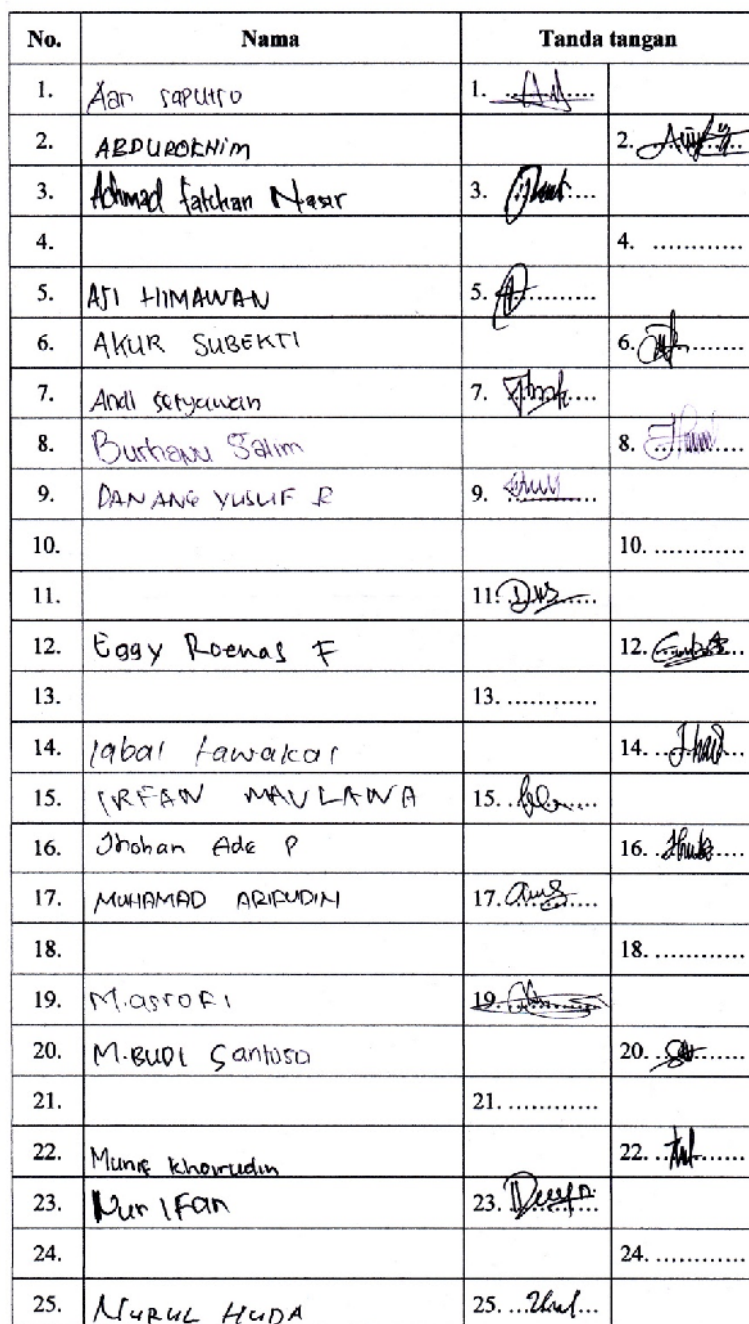 No. Nama Tanda tangan
1. Aan saputro 1. ............
2. ABDUROKHIM 2. ............
3. Achmad fatchan Nasir 3. ............
4. 4. ............
5. AJI HIMAWAN 5. ............
6. AKUR SUBEKTI 6. ............
7. Andi setyawan 7. ............
8. Burhanu Salim 8. ............
9. DANANG YUSUF R 9. ............
10. 10. ............
11. 11. ............
12. Eggy Roenas F 12. ............
13. 13. ............
14. Iqbal tawakal 14. ............
15. IRFAN MAULANA 15. ............
16. Jhohan Ade P 16. ............
17. MUHAMAD ARIFUDIN 17. ............
18. 18. ............
19. M.asrofi 19. ............
20. M.BUDI Santoso 20. ............
21. 21. ............
22. Munif khoirudin 22. ............
23. Nur IFan 23. ............
24. 24. ............
25. NURUL HUDA 25. ............